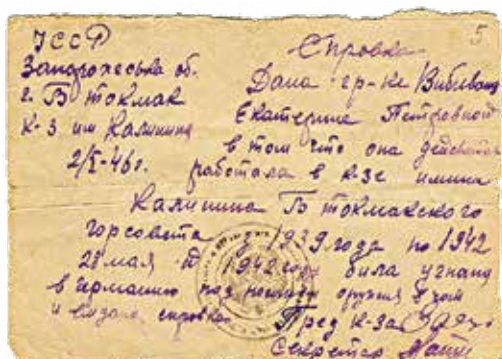 5
УССР
Запорожеська об.
г. Б токмак
К-З им Калинина
2/X-46 г.
Справка
Дана гр-ке
Екатерине Петровной
в том что она действител
работала в к-зе имени
Калинина Б токмакского
горсовета с 1939 года по 1942
28 мая 1942 года била угнана
в Германию под оружия
и справка
Пред к-за
Секретар